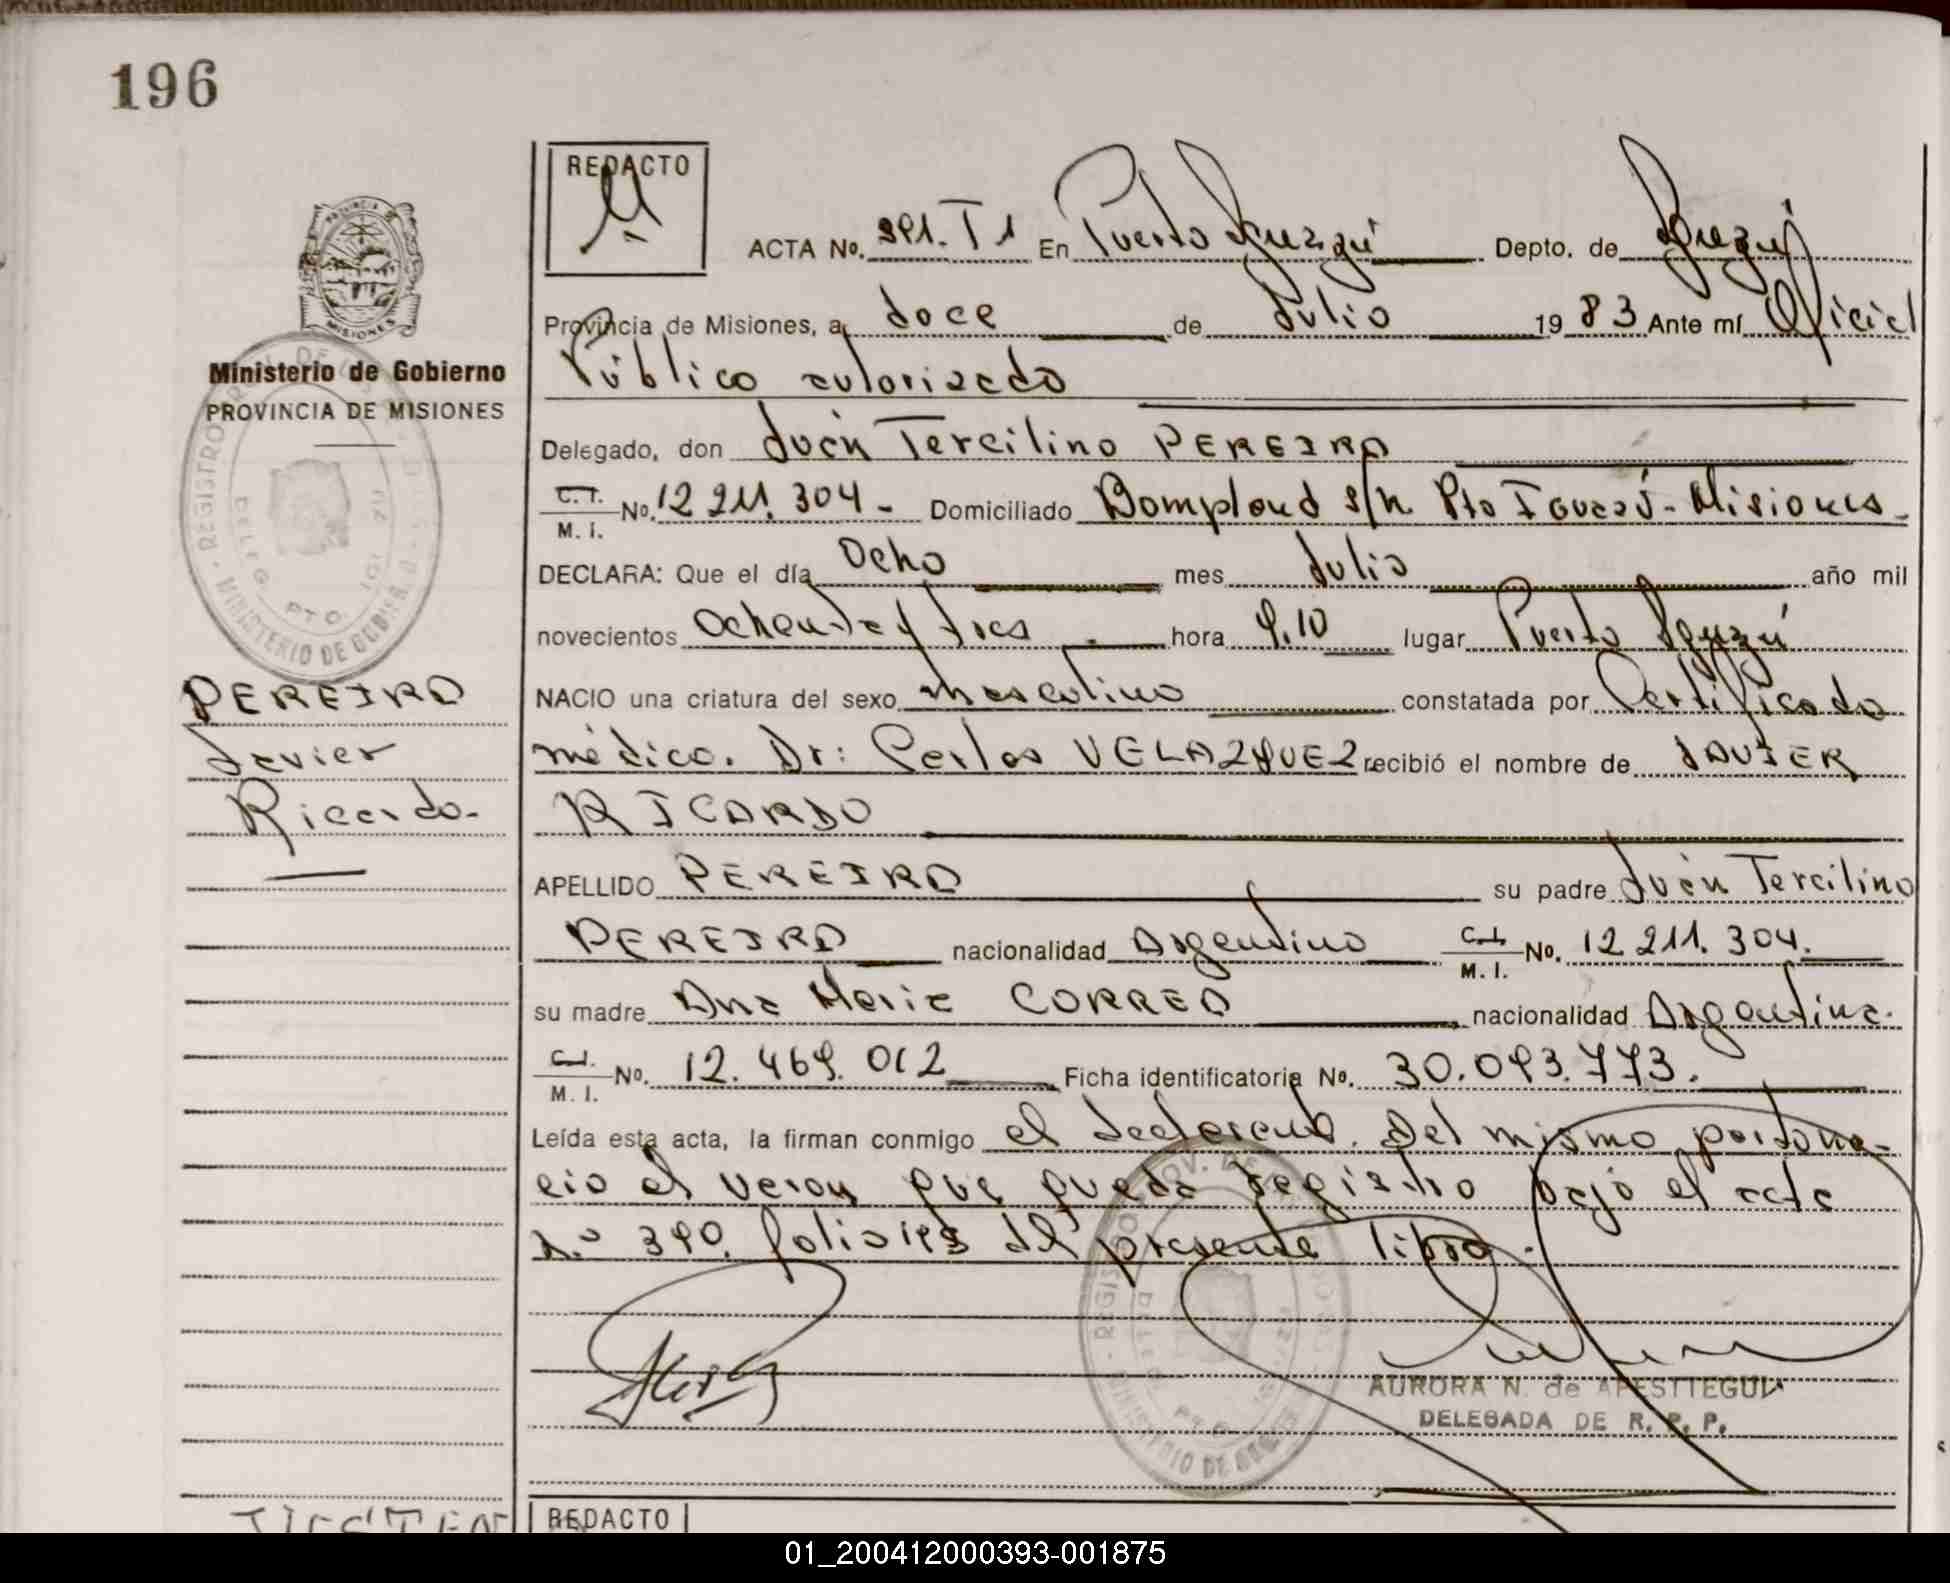 196
REDACTO
ACTA No. 391. T 1 En Puerto Iguazú Depto. de Iguazú
PROVINCIA DE
MISIONES
Provincia de Misiones, a doce de Julio 1983 Ante mí Oficial
Ministerio de Gobierno
Público autorizado
PROVINCIA DE MISIONES
Delegado, don Juan Tercilino PEREIRA
C. I. M. I. No. 12 211. 304 - Domiciliado Bompland s/n Pto Iguazú - Misiones -
DECLARA: Que el día Ocho mes Julio año mil
novecientos ochenta y tres hora 9.10 lugar Puerto Iguazú
PEREIRA
NACIO una criatura del sexo masculino constatada por Certificado
Javier
médico. Dr: Carlos VELAZQUEZ recibió el nombre de JAVIER
Ricardo.
RICARDO
APELLIDO PEREIRA su padre Juan Tercilino
PEREIRA nacionalidad Argentino C. I. M. I. No. 12 211. 304.
su madre Ana Maria CORREA nacionalidad Argentina.
C. I. M. I. No. 12. 469. 012 Ficha identificatoria No. 30.093.773.
Leída esta acta, la firman conmigo el declarante. Del mismo parto na-
cio el varon que queda registro bajo el acta
n.º 390. folio 195 del presente libro.
AURORA N. de APESTTEGUI
DELEGADA DE R. P. P.
REDACTO
01_200412000393-001875